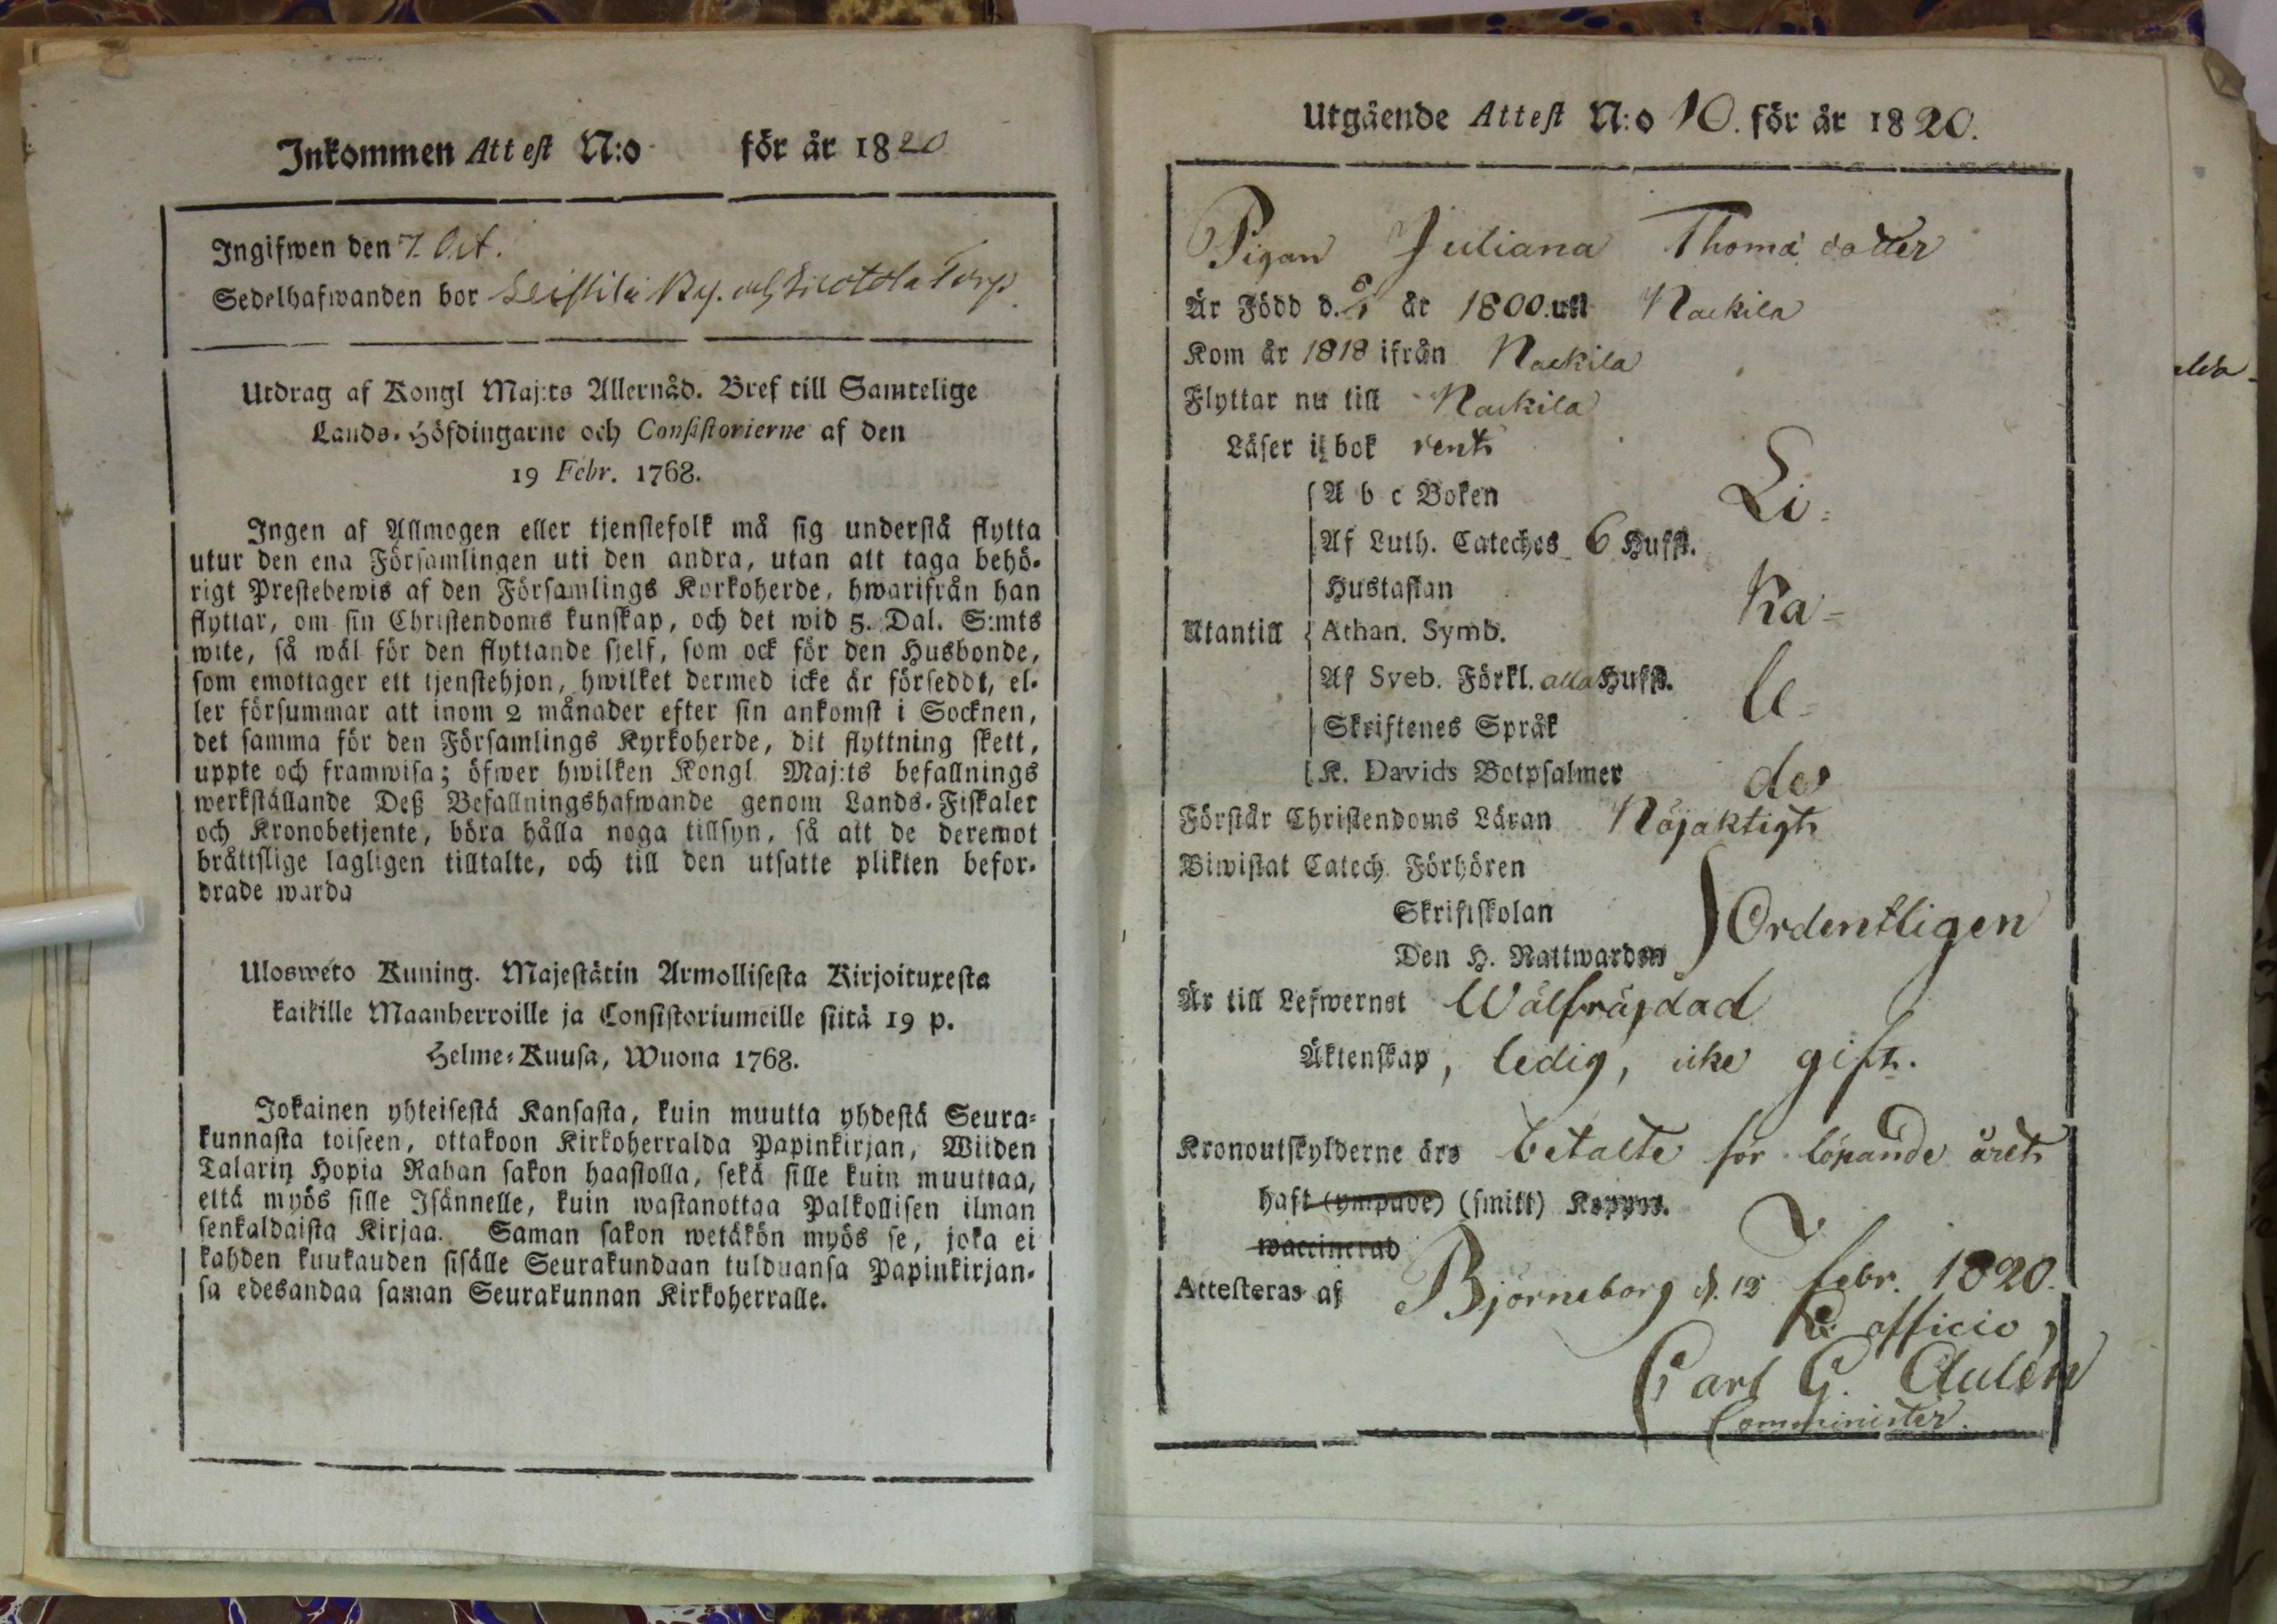 Inkommen Attest N:o för år 1820
Ingifwen den 7. Oct.
Sedelhafwanden bor Leistilä By. och Torp
Utdrag af Kongl Maj:ts Allernåd. Bref till Samtelige
Lands-Höfdingarne och Consistorierne af den
19 Febr. 1768.
Ingen af Allmogen eller tjenstefolk må sig understå flytta
utur den ena Församlingen uti den andra, utan att taga behö-
rigt Prestebewis af den Församlings Korkoherde, hwarifrån han
flyttar, om sin Christendoms kunskap, och det wid 5. Dal. S:mts
wite, så wäl för den flyttande sjelf, som ock för den Husbonde,
som emottager ett tjenstehjon, hwilket dermed icke är försedt, el-
ler försummar att inom 2 månader efter sin ankomst i Socknen,
det samma för den Församlings Kyrkoherde, dit flyttning skett,
uppte och framwisa; öfwer hwilken Kongl. Maj:ts befallnings
werkställande Deß Befallningshafwande genom Lands-Fiskaler
och Kronobetjente, böra hålla noga tillsyn, så att de deremot
bråttslige lagligen tilltalte, och till den utsatte plikten befor-
drade warda
Ulosweto Kuning. Majestätin Armollisesta Kirjoituxesta
kaikille Maanherroille ja Consistoriumeille siitä 19 p.
Helme-Kuusa, Wuona 1768.
Jokainen yhteisestä Kansasta, kuin muutta yhdestä Seura-
kunnasta toiseen, ottakoon Kirkoherralda Papinkirjan, Wiiden
Talarin Hopia Rahan sakon haastolla, sekä sille kuin muuttaa,
että myös sille Isännelle, kuin wastanottaa Palkollisen ilman
senkaldaista Kirjaa. Saman sakon wetäkön myös se, joka ei
kahden kuukauden sisälle Seurakundaan tulduansa Papinkirjan-
sa edesandaa saman Seurakunnan Kirkoherralle.
Utgående Attest N:o 10. för år 1820.
Pigan Juliana Thomä dotter
Är Född d. år 1800. uti Nackila
Kom år 1818 ifrån Nackila
Flyttar nu till Nackila
Läser i bok rent
A b c Boken
Af Luth. Cateches 6 Hufst.
Hustaflan
Utantill Athan. Symb.
Af Sveb. Förkl. alla Hufst.
Skriftenes Språk
K. Davids Botpsalmer
Li-
ka-
le-
des
Förstår Christendoms Läran Nöjaktigt
Biwistat Catech. Förhören
Skriftskolan
Den H. Nattwarden
Ordentligen
Är till Lefwernet Wälfräjdad
Äktenskap, ledig, icke gift.
Kronoutskylderne äro betalte för löpande året
haft (ympade) (smitt) Koppor.
waccinerad
Attesteras af Björneborg d. 12 Febr. 1820.
Ex officio,
Carl G. Aulén
Comminister.